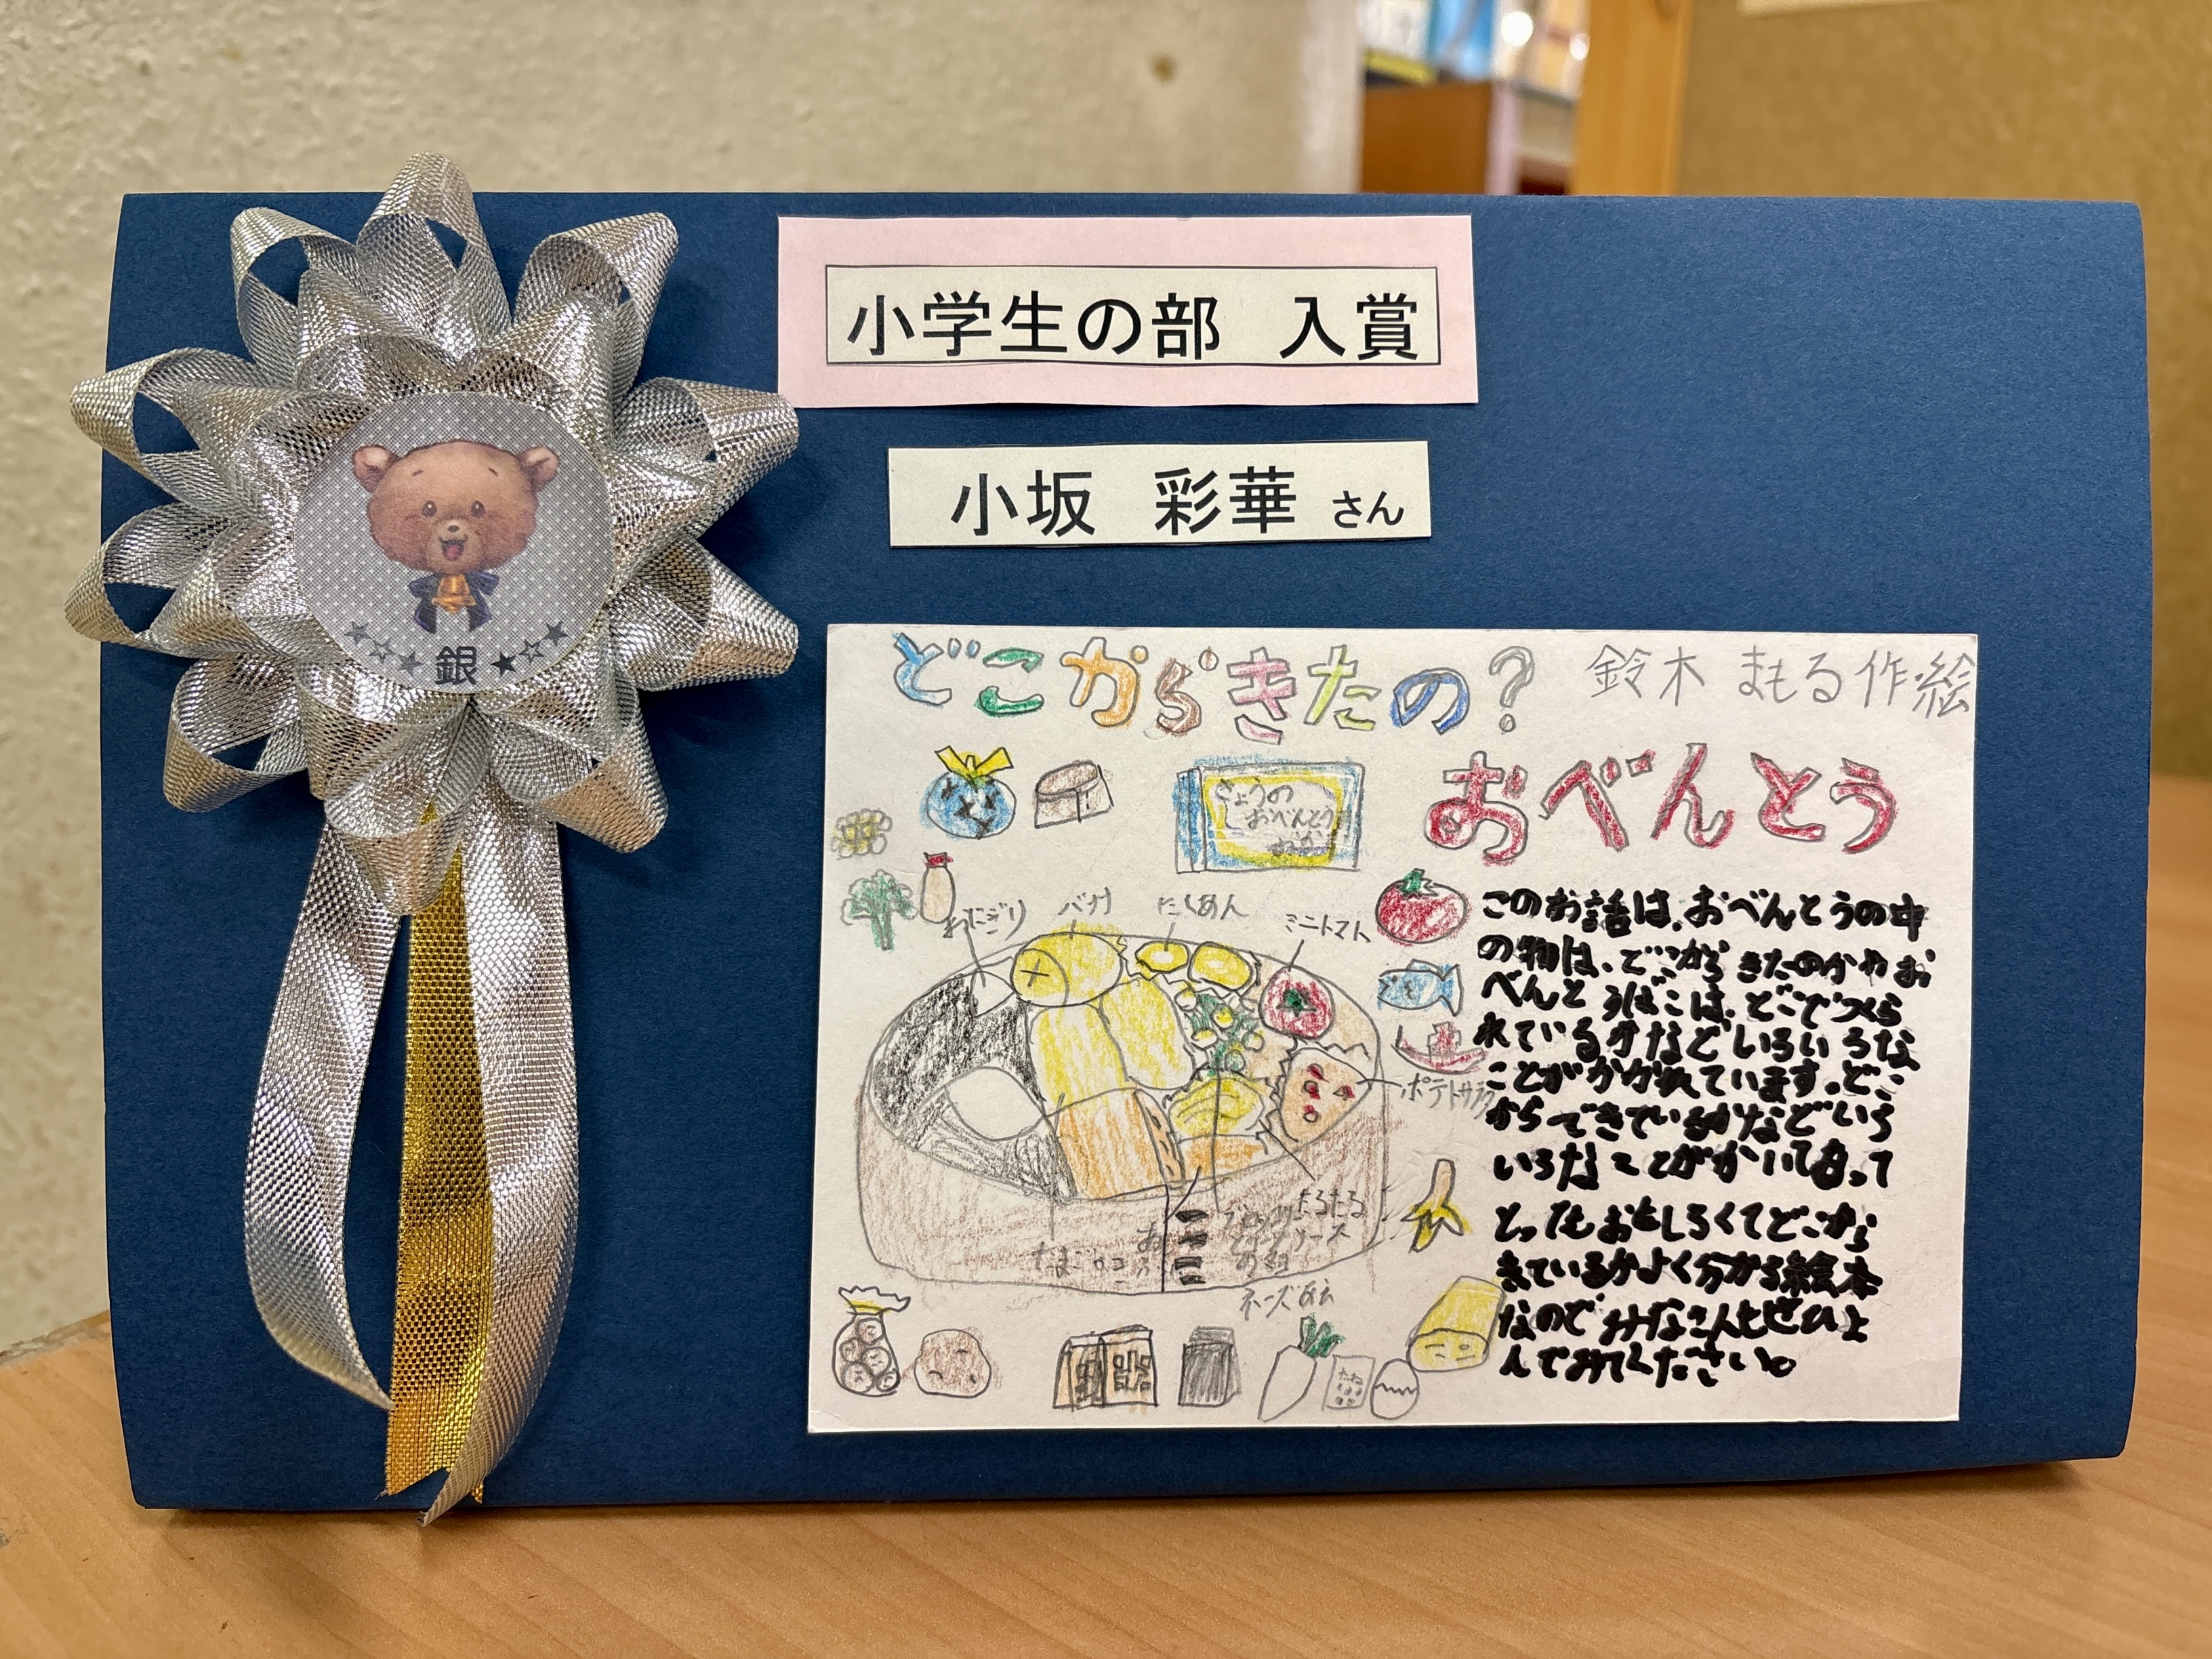 小学生の部 入賞
小坂 彩華 さん
銀
どこからきたの?
鈴木 まもる 作・絵
おべんとう
きょうの
おべんとう
おにぎり
バナナ
たくあん
ミニトマト
ポテトサラダ
たるたる
ソース
たまご
たね
このお話は、おべんとうの中
の物は、どこからきたのかやお
べんとうばこは、どこでつくら
れているかなどいろいろな
ことがかかれています。どこ
からできているかなどいろ
いろなことがかいてあって
とってもおもしろくてどこから
きているかよく分かる絵本
なのでみなさんもぜひよ
んでみてください。